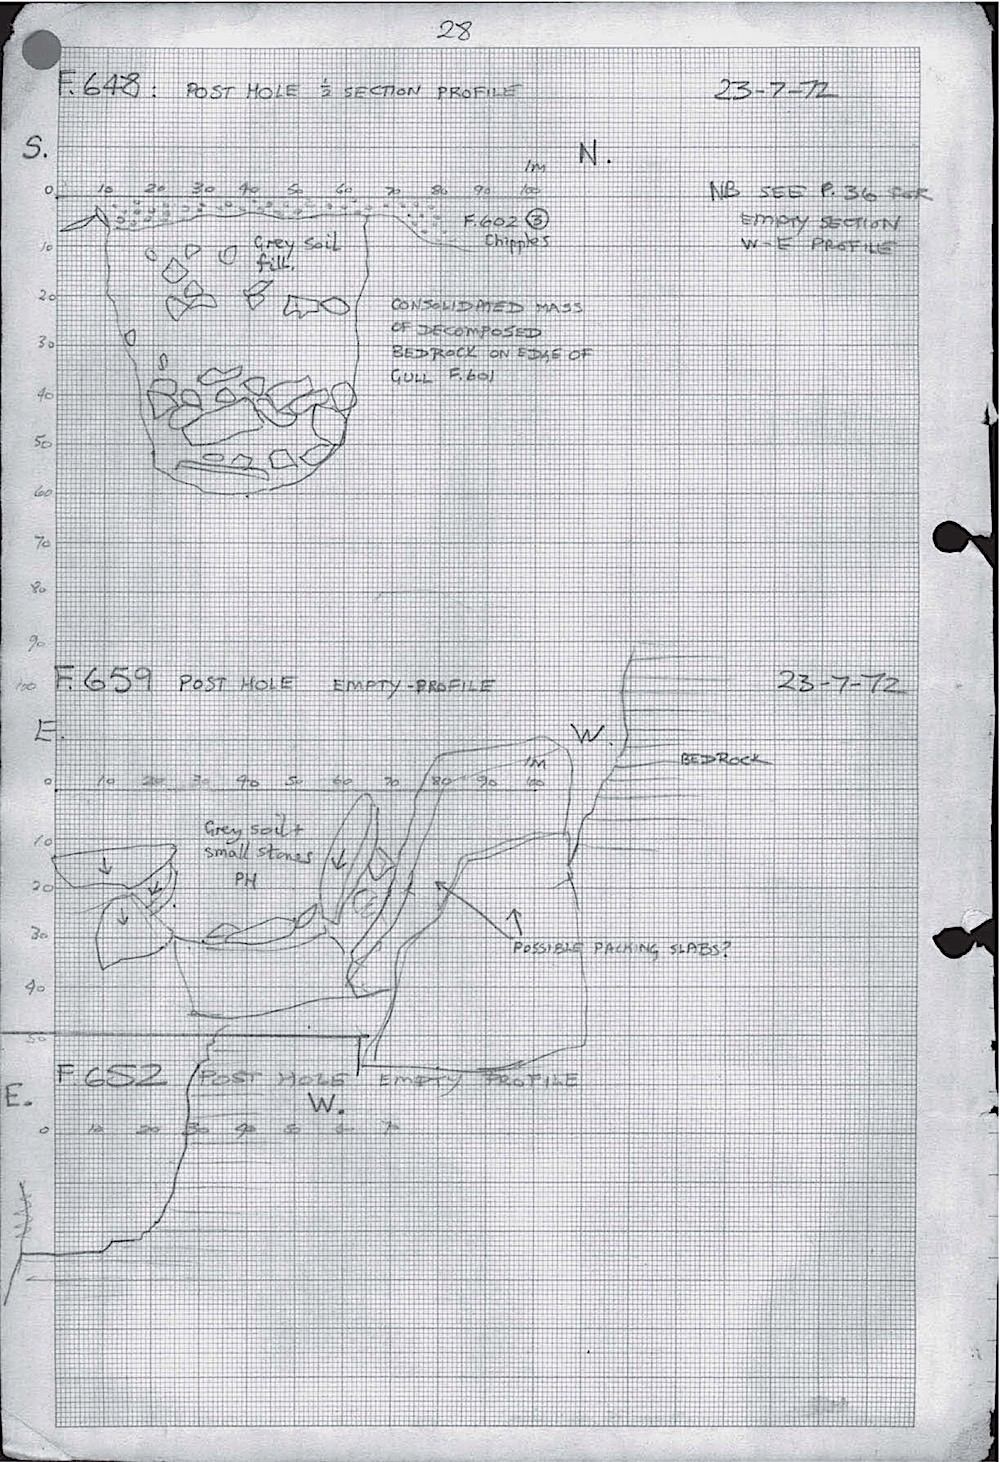 28
F.648: POST HOLE ½ SECTION PROFILE 23-7-72
S. N.
1m
0 10 20 30 40 50 60 70 80 90 100
NB SEE P.36 FOR
EMPTY SECTION
W-E PROFILE
F.602 ③
Chipples
Grey soil
fill.
10
20
30
40
50
60
70
80
90
100
CONSOLIDATED MASS
OF DECOMPOSED
BEDROCK ON EDGE OF
GULL F.601
F.659 POST HOLE EMPTY-PROFILE 23-7-72
E. W.
BEDROCK
1m
0 10 20 30 40 50 60 70 80 90 100
10
20
30
40
50
Grey soil +
small stones
PH
POSSIBLE PACKING SLABS?
F.652 POST HOLE EMPTY PROFILE
E. W.
0 10 20 30 40 50 6 70